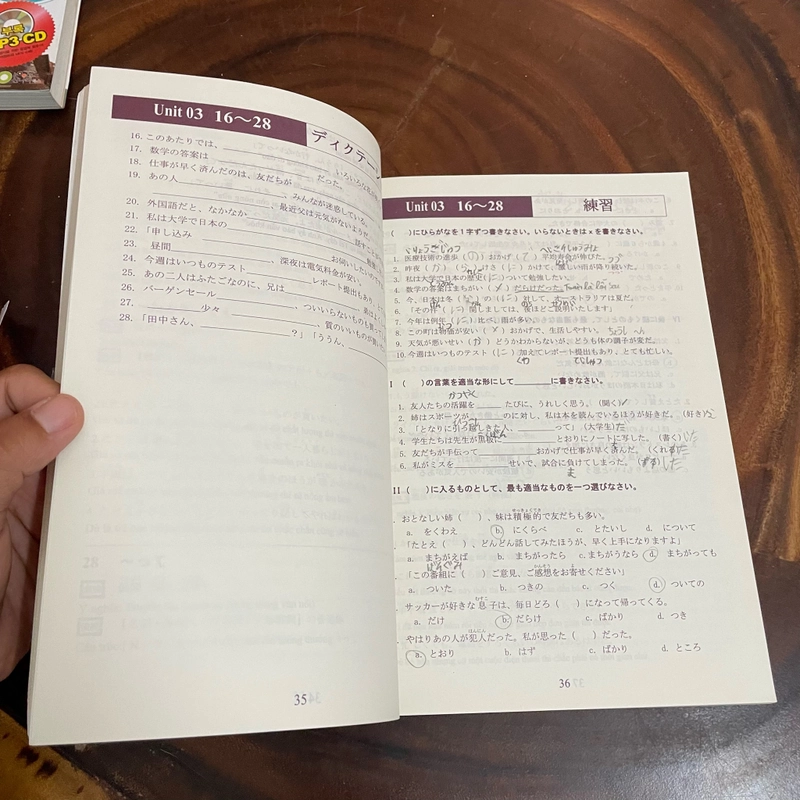 부록
P3·CD
Unit 03 16～28
ディクテー
16. このあたりでは、
いろいろな
17. 数学の答案は だった。
18. 仕事が早く済んだのは、友だちが
19. あの人 、みんなが迷惑している。
、最近父は元気がないようだ。
20. 外国語だと、なかなか 話す
21. 私は大学で日本の
22. 「申し込み お伺いしたいの
23. 昼間 、深夜は電気料金が安い。
24. 今週はいつものテスト レポート提出もあり、
25. あの二人はふたごなのに、兄は
26. バーゲンセール ついいらないものも買って
27. 少々 、質のいいものが買い
28. 「田中さん、 ？」「ううん、
35
Unit 03 16～28
練習
( )にひらがなを1字ずつ書きなさい。いらないときは×を書きなさい。
1. 医療技術の進歩（の）おかげ（で）平均寿命が伸びた。
2. 昨夜（か）らけさ（に）かけて、激しい雨が降り続いた。
3. 私は大学で日本の歴史（に）ついて勉強したい。
4. 数学の答案はまちがい（×）だらけだった。
5. 今、日本は冬（な）の（に）対して、オーストラリアは夏だ。
6. 「その件（に）関しましては、後ほどご説明いたします」
7. 今年は例年（に）比べ、雨が多い。
8. この町は物価が安い（×）おかげで、生活しやすい。
9. 天気が悪いせい（か）どうかわからないが、どうも体の調子が変だ。
10. 今週はいつものテスト（に）加えてレポート提出もあり、とても忙しい。
( )の言葉を適当な形にして に書きなさい。
かつやく
1. 友人たちの活躍を たびに、うれしく思う。（聞く）
2. 姉はスポーツが のに対し、私は本を読んでいるほうが好きだ。（好き）
3. 「となりに引っ越しきた人、 って」（大学生）だ
4. 学生たちは先生が黒板に とおりにノートに写した。（書く）した
5. 友だちが手伝って おかげで仕事が早く済んだ。（くれ
6. 私がミスを せいで、試合に負けてしまった。（する）した
( )に入るものとして、最も適当なものを一つ選びなさい。
おとなしい姉（ ）、妹は積極的で友だちも多い。
a. をくわえ b. にくらべ c. とたいし d. について
「たとえ（ ）、どんどん話してみたほうが、早く上手になりますよ」
a. まちがえば b. まちがったら c. まちがうなら d. まちがっても
ばんぐみ
「この番組に（ ）ご意見、ご感想をお寄せください」
a. ついた b. つきの c. つく d. ついての
サッカーが好きな息子は、毎日どろ（ ）になって帰ってくる。
a. だけ b. だらけ c. ばかり d. つき
やはりあの人が犯人だった。私が思った（ ）だった。
a. とおり b. はず c. ばかり d. ところ
36